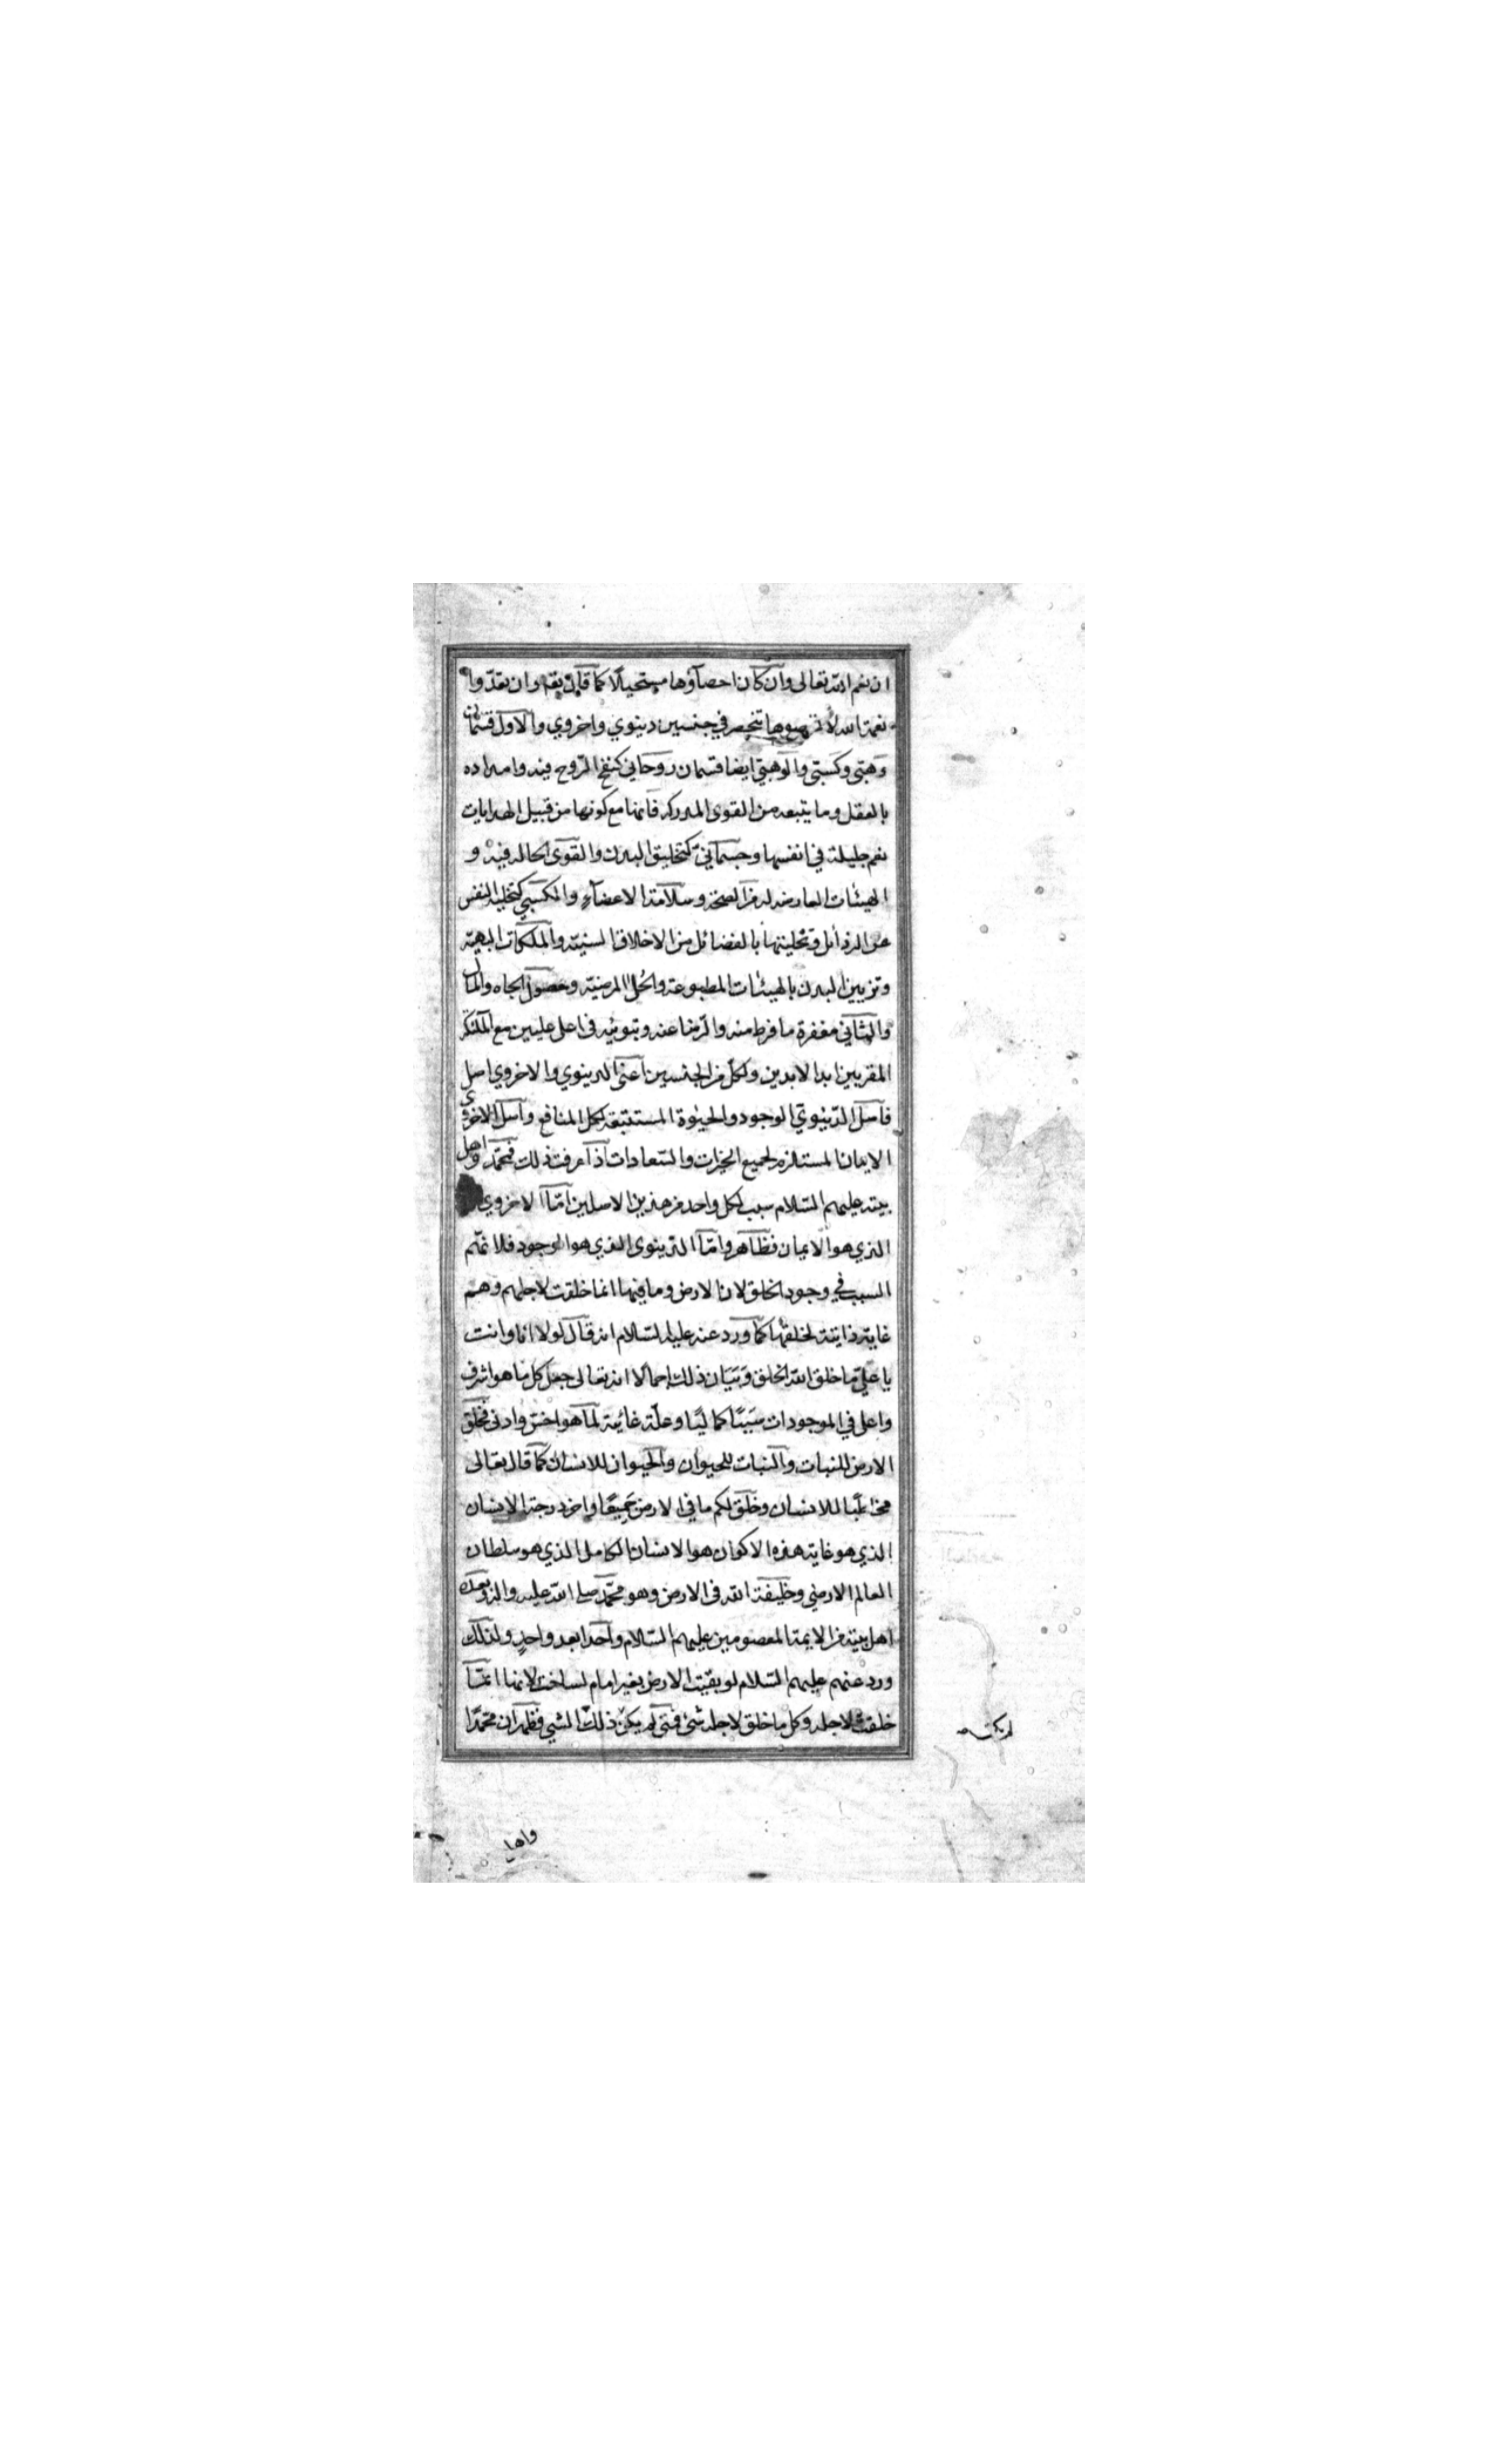 ان نعم الله تعالى وان كان احصاؤها مستحيلا كما قال تعالى وان تعدوا
نعمة الله لا تحصوها تنحصر في جنسين دنيوي واخروي والاول قسمان
وهبى وكسبى والوهبي ايضا قسمان روحاني كنفخ الروح فيه وامداده
بالعقل وما يتبعه من القوى المدركه فانها مع كونها من قبيل الهدايات
نعم جليلة في انفسها وجسماني كتخليق البدن والقوى الحاله فيه و
الهيئات العارضه له من الصحة وسلامة الاعضاء والكسبي كتخلية النفس
عن الرذائل وتحليتها بالفضائل من الاخلاق السنيه والملكات البهيه
وتزيين البدن بالهيئات المطبوعة والحلل المرضية وحصول الجاه والمال
والثاني مغفرة ما فرط منه والرضا عنه وتبوئه في اعلى عليين مع الملئكة
المقربين ابد الابدين ولكل من الجنسين اعنى الدنيوي والاخروي اصل
فاصل الدنيوي الوجود والحيوة المستتبعة لكل المنافع واصل الاخروي
الايمان المستلزم لجميع الخيرات والسعادات اذا عرفت ذلك فمحمد واهل
بيته عليهم السلام سبب لكل واحد من هذين الاصلين اما الاخروي
الذي هو الايمان فظاهر واما الدنيوي الذي هو الوجود فلانهم
السبب في وجود الخلق لان الارض وما فيها انما خلقت لاجلهم وهم
غاية ذاتية لخلقها كما ورد عنه عليه السلام انه قال لولا انا وانت
يا علي ما خلق الله الخلق وبيان ذلك اجمالا انه تعالى جعل كل ما هو اشرف
واعلى في الموجودات سببا كماليا وعلة غائية لما هو اخس وادنى فخلق
الارض للنبات والنبات للحيوان والحيوان للانسان كما قال تعالى
مخاطبا للانسان وخلق لكم ما في الارض جميعا واخر درجة الانسان
الذي هو غاية هذه الاكوان هو الانسان الكامل الذي هو سلطان
العالم الارضي وخليفة الله في الارض وهو محمد صلى الله عليه واله وبعده
اهل بيته من الايمة المعصومين عليهم السلام واحدا بعد واحد ولذلك
ورد عنهم عليهم السلام لو بقيت الارض بغير امام لساخت لانها انما
خلقت لاجله وكل ما خلق لاجله شئ فمتى لم يكن ذلك الشي فظهر ان محمدا
لم يكن صح
واهل